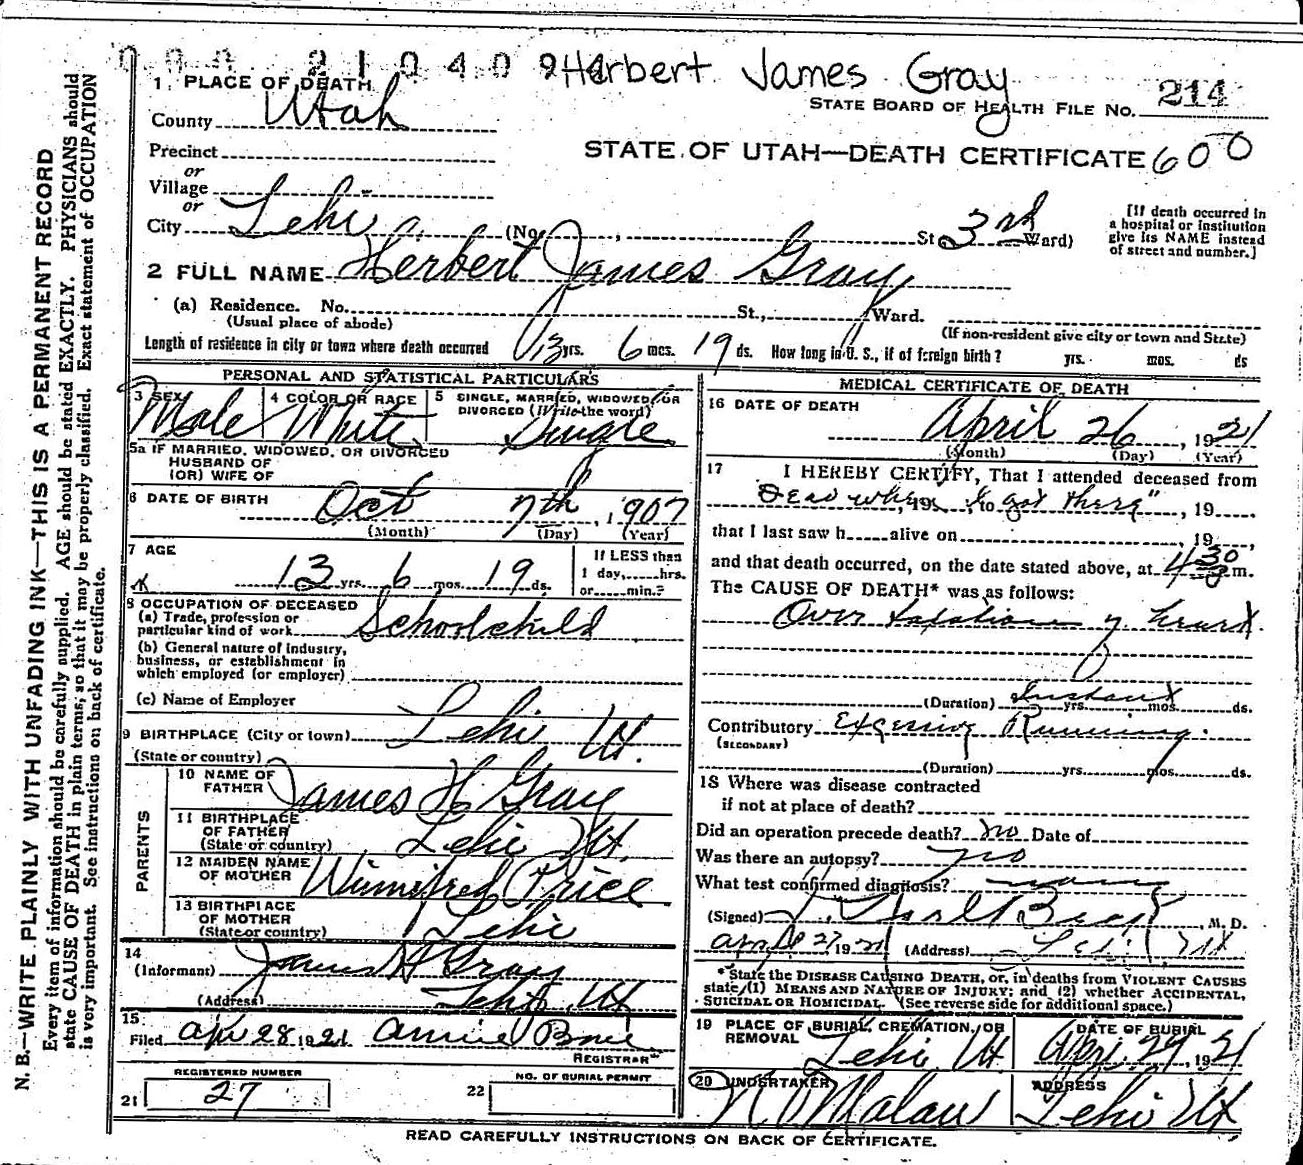 000 21040 94 Herbert James Gray
1. PLACE OF DEATH
STATE BOARD OF HEALTH FILE NO. 214
County Utah
Precinct
STATE OF UTAH—DEATH CERTIFICATE 600
or
Village
or
City Lehi (No. , St. 3rd Ward)
[If death occurred in
a hospital or institution
give its NAME instead
of street and number.]
2 FULL NAME Herbert James Gray
(a) Residence. No. St., Ward.
(Usual place of abode)
(If non-resident give city or town and State)
Length of residence in city or town where death occurred 13 yrs. 6 mos. 19 ds. How long in U. S., if of foreign birth? yrs. mos. ds
PERSONAL AND STATISTICAL PARTICULARS
3 SEX
Male
4 COLOR OR RACE
White
5 SINGLE, MARRIED, WIDOWED, OR
DIVORCED (Write the word)
Single
5a IF MARRIED, WIDOWED, OR DIVORCED
HUSBAND OF
(OR) WIFE OF
6 DATE OF BIRTH
Oct 7th, 1907
(Month) (Day) (Year)
7 AGE
13 yrs. 6 mos. 19 ds.
If LESS than
1 day, hrs.
or min.?
8 OCCUPATION OF DECEASED
(a) Trade, profession or
particular kind of work Schoolchild
(b) General nature of industry,
business, or establishment in
which employed (or employer)
(c) Name of Employer
9 BIRTHPLACE (City or town) Lehi Ut.
(State or country)
PARENTS
10 NAME OF
FATHER James H Gray
11 BIRTHPLACE
OF FATHER
(State or country) Lehi Ut.
12 MAIDEN NAME
OF MOTHER Winnifred Price
13 BIRTHPLACE
OF MOTHER
(State or country) Lehi
14
(Informant) James H Gray
(Address) Lehi Ut
15
Filed Apr 28 1921 Annie
REGISTRAR
REGISTERED NUMBER
21 27
NO. OF BURIAL PERMIT
22
MEDICAL CERTIFICATE OF DEATH
16 DATE OF DEATH
April 26, 1921
(Month) (Day) (Year)
17 I HEREBY CERTIFY, That I attended deceased from
Dead when, 19 , to I got there", 19
that I last saw h alive on , 19 ,
and that death occurred, on the date stated above, at 430 m.
The CAUSE OF DEATH* was as follows:
Over of heart.
(Duration) Instant yrs. mos. ds.
Contributory Excessive Running.
(SECONDARY)
(Duration) yrs. mos. ds.
18 Where was disease contracted
if not at place of death?
Did an operation precede death? no Date of
Was there an autopsy? no
What test confirmed diagnosis?
(Signed) , M. D.
April 27, 1921 (Address) Lehi Ut
*State the DISEASE CAUSING DEATH, or, in deaths from VIOLENT CAUSES
state (1) MEANS AND NATURE OF INJURY; and (2) whether ACCIDENTAL,
SUICIDAL OR HOMICIDAL. (See reverse side for additional space.)
19 PLACE OF BURIAL, CREMATION, OR
REMOVAL Lehi Ut.
DATE OF BURIAL
Apr. 29, 1921
20 UNDERTAKER
ADDRESS
Lehi Ut.
READ CAREFULLY INSTRUCTIONS ON BACK OF CERTIFICATE.
N. B.—WRITE PLAINLY WITH UNFADING INK—THIS IS A PERMANENT RECORD
Every item of information should be carefully supplied. AGE should be stated EXACTLY. PHYSICIANS should
state CAUSE OF DEATH in plain terms, so that it may be properly classified. Exact statement of OCCUPATION
is very important. See instructions on back of certificate.